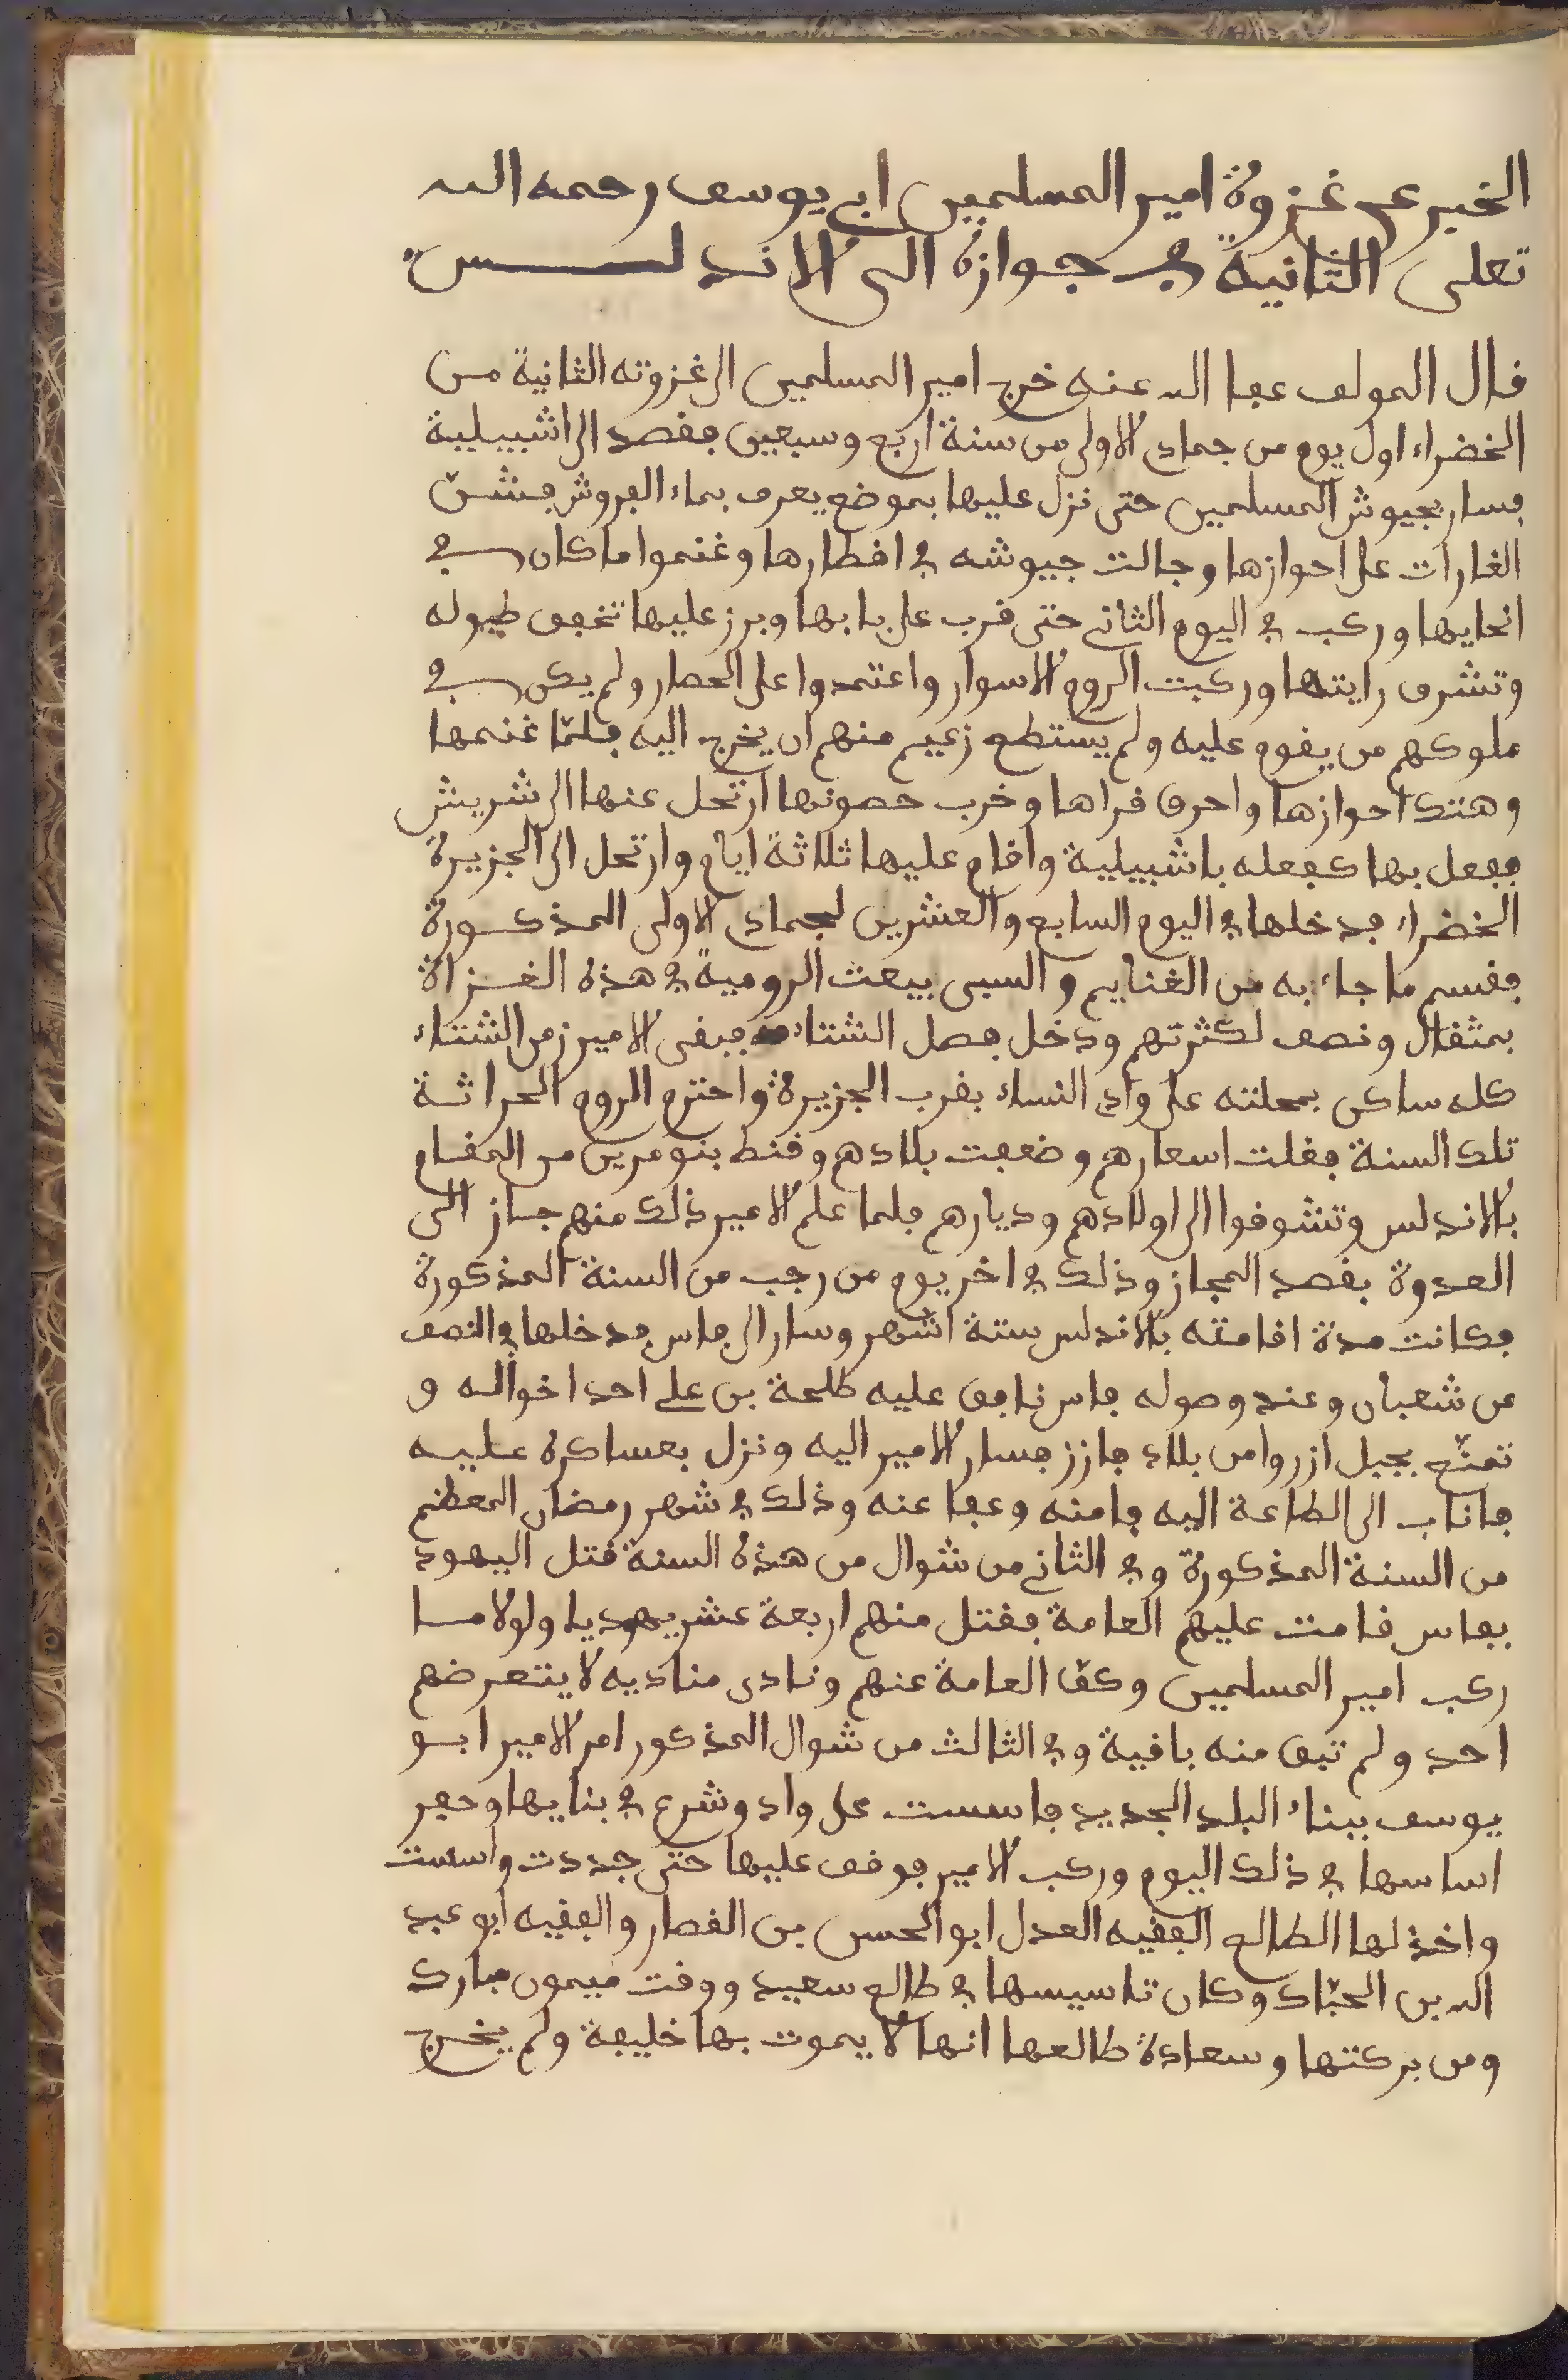 الخبر عن غزوة امير المسلمين ابي يوسف رحمه الله
تعلى الثانية في جوازه الى الاندلس
قال المولف عفا الله عنه خرج امير المسلمين الى غزوته الثانية من
الخضراء اول يوم من جمادى الاولى من سنة اربع وسبعين فقصد الى اشبيلية
فسار بجيوش المسلمين حتى نزل عليها بموضع يعرف بماء الفروش فشنّ
الغارات على احوازها وجالت جيوشه في اقطارها وغنموا ما كان في
انحايها وركب في اليوم الثاني حتى قرب على بابها وبرز عليها تخفق طبوله
وتشرف رايتها وركبت الروم الاسوار واعتمدوا على الحصار ولم يكن في
ملوكهم من يقوم عليه ولم يستطع زعيم منهم ان يخرج اليه فلمّا غنمها
وهتك احوازها واحرق قراها وخرب حصونها ارتحل عنها الى شريش
ففعل بها كفعله باشبيلية واقام عليها ثلاثة ايام وارتحل الى الجزيرة
الخضراء فدخلها في اليوم السابع والعشرين لجمادى الاولى المذكورة
فقسم ما جاء به من الغنايم والسبى بيعت الرومية في هذه الغزاة
بمثقال ونصف لكثرتهم ودخل فصل الشتاء فبقى الامير زمن الشتاء
كله ساكن بمحلته على وادي النساء بقرب الجزيرة واحترم الروم الحراثة
تلك السنة فغلت اسعارهم وضعفت بلادهم وقنط بنو مرين من المقام
بالاندلس وتشوقوا الى اولادهم وديارهم فلما علم الامير ذلك منهم جاز الى
العدوة بقصد المجاز وذلك في اخر يوم من رجب من السنة المذكورة
فكانت مدة اقامته بالاندلس ستة اشهر وسار الى فاس فدخلها في النصف
من شعبان وعند وصوله فاس نافق عليه طلحة بن علي احد اخواله و
تمنّع بجبل ازروا من بلاد فازز فسار الامير اليه ونزل بعساكره عليه
فاناب الى الطاعة اليه فامنه وعفا عنه وذلك في شهر رمضان المعظم
من السنة المذكورة وفي الثاني من شوال من هذه السنة قتل اليهود
بفاس قامت عليهم العامة فقتل منهم اربعة عشر يهوديا ولولا ما
ركب امير المسلمين وكفّ العامة عنهم ونادى مناديه لا يتعرضهم
احد ولم تبق منه باقية وفي الثالث من شوال المذكور امر الامير ابو
يوسف ببناء البلد الجديد فاسست على واد وشرع في بنايها وحفر
اساسها في ذلك اليوم وركب الامير فوقف عليها حتى جددت واسست
واخذ لها الطالع الفقيه العدل ابو الحسن بن القصار والفقيه ابو عبد
الله بن الحبّاك وكان تاسيسها في طالع سعيد ووقت ميمون مبارك
ومن بركتها وسعادة طالعها انها لا يموت بها خليفة ولم يخرج